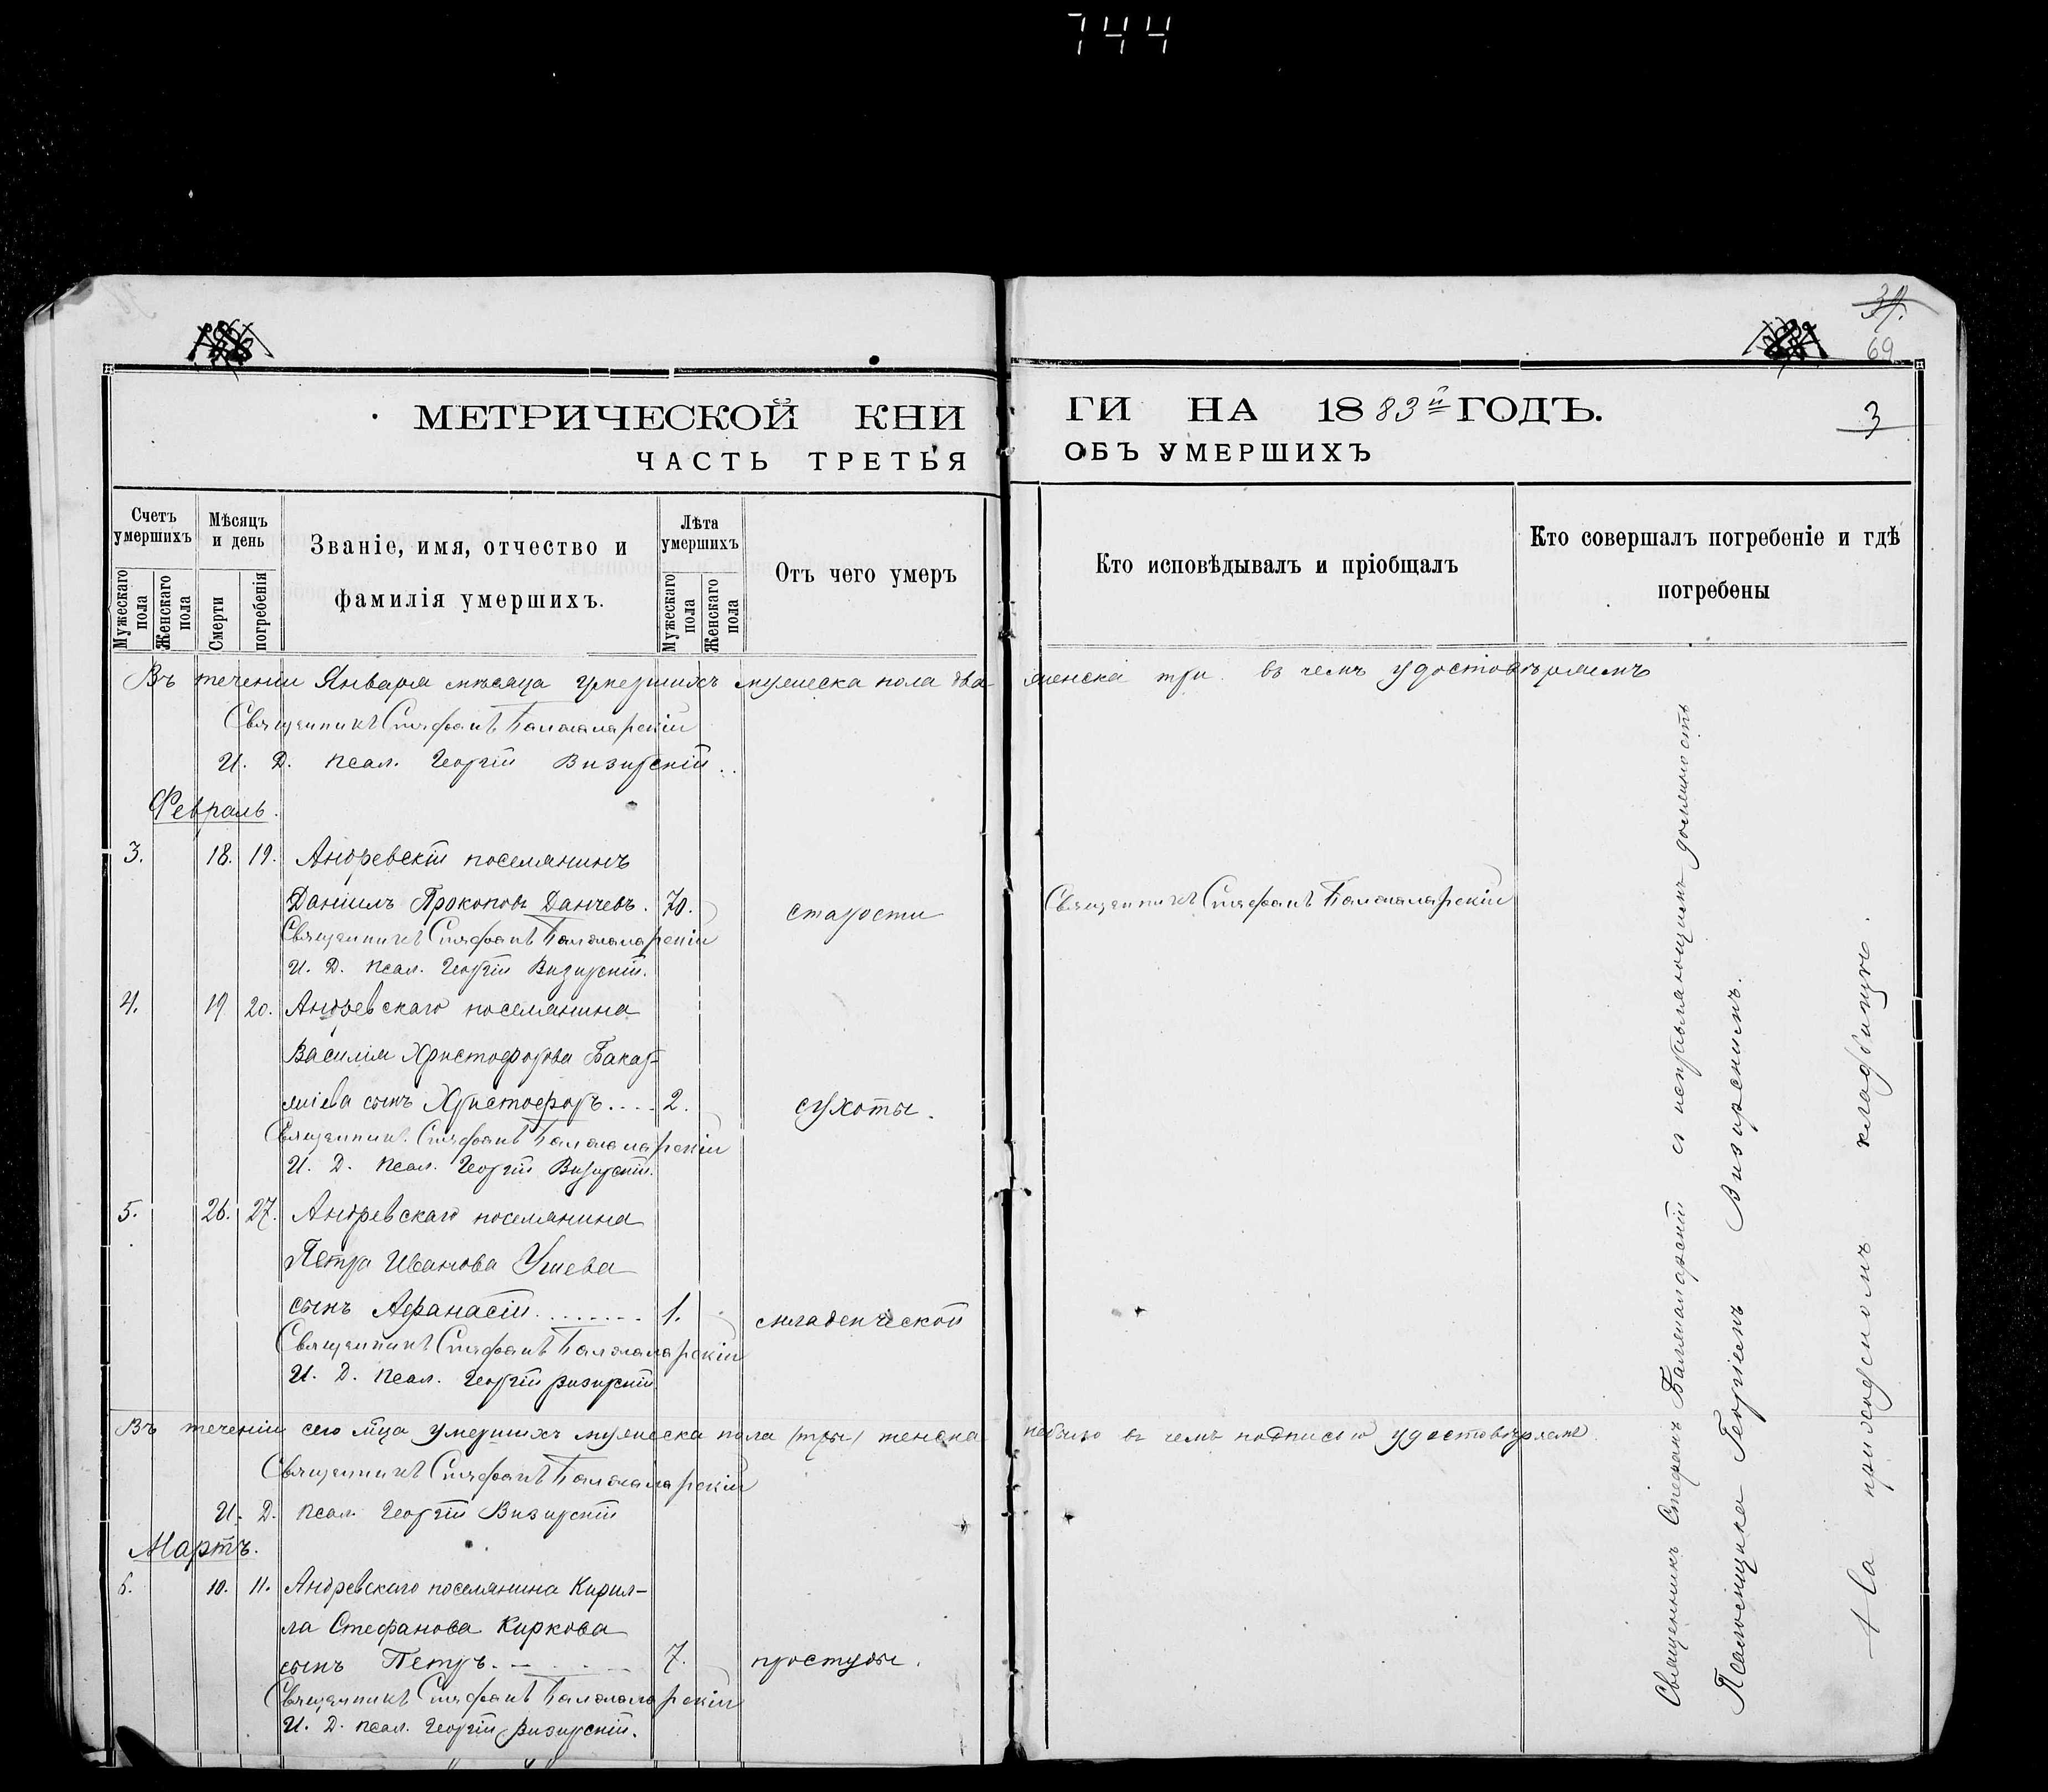 744
39.
69
МЕТРИЧЕСКОЙ КНИ
ГИ НА 1883й ГОДЪ.
3
ЧАСТЬ ТРЕТЬЯ
ОБЪ УМЕРШИХЪ
Счетъ умершихъ
Мужескаго пола
Женскаго пола
Мѣсяцъ и день
Смерти
погребенія
Званіе, имя, отчество и
фамилія умершихъ.
Лѣта умершихъ
Мужескаго пола
Женскаго пола
Отъ чего умеръ
Кто исповѣдывалъ и пріобщалъ
Кто совершалъ погребеніе и гдѣ
погребены
Въ теченіи Января мѣсяца умершихъ мужеска пола два женска три въ чемъ удостовѣряемъ
Священникъ Стефанъ Баламаларскій
И. Д. псал. Георгій Визирскій..
Февраль.
3. 18. 19. Андревскій поселянинъ
Даніилъ Прокоповъ Данчевъ. 70. старости Священникъ Стефанъ Баламаларскій
Священникъ Стефанъ Баламаларскій
И. Д. псал. Георгій Визирскій.
4. 19 20. Андревскаго поселянина
Василія Христофорова Бакар-
жіева сынъ Христофоръ.... 2. сухоты.
Священник. Стефанъ Баламаларскій
И. Д. псал. Георгій Визирскій.
5. 26. 27. Андревскаго поселянина
Петра Иванова Узиева
сынъ Афанасій......... 1. младенческой
Священникъ Стефанъ Баламаларскій
И. Д. псал. Георгій Визирскій
Въ теченіи сего мѣца умершихъ мужеска пола (три) женска небыло въ чемъ подписью удостовѣряемъ
Священникъ Стефанъ Баламаларскій
И. Д. псал. Георгій Визирскій
Мартъ.
6. 10. 11. Андревскаго поселянина Кирил-
ла Стефанова Киркова
сынъ Петръ. 7. простуды.
Священникъ Стефанъ Баламаларскій
И. Д. псал. Георгій Визирскій.
Священникъ Стефанъ Баламаларскій съ исправляющимъ должность
Псаломщика Георгіемъ Визирскимъ.
На приходскомъ кладбищѣ.